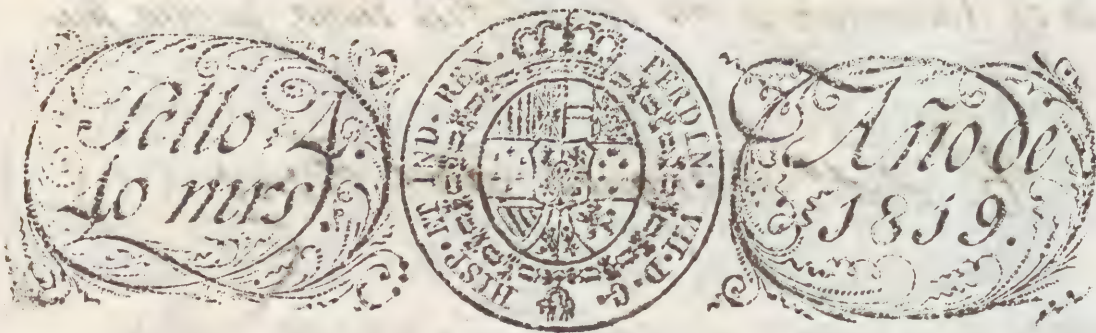 Sello 4.
40 mrs
FERDIN. VII. D. G. HISP. ET IND. REX.
Año de
1819.